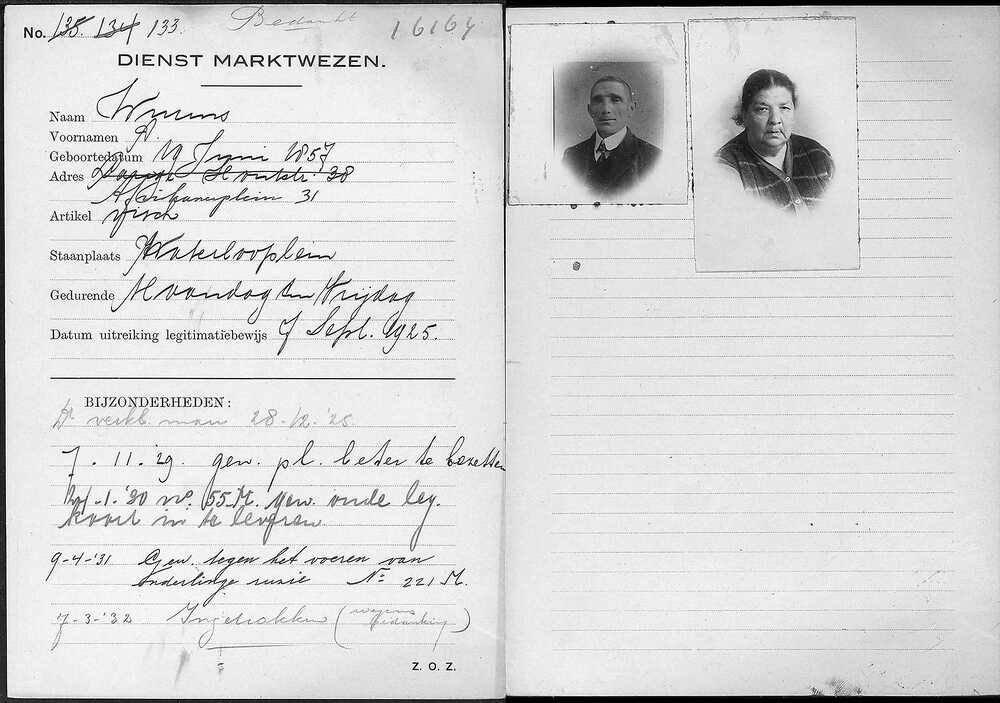 No. 135. 134 133. Bedankt 16164
DIENST MARKTWEZEN.
Naam Winnns
Voornamen A.
Geboortedatum 19 Juni 1857
Adres Houtstr. 38
Afrikanerplein 31
Artikel visch
Staanplaats Waterlooplein
Gedurende Maandag t/m Vrijdag
Datum uitreiking legitimatiebewijs 7 Sept. 1925.
BIJZONDERHEDEN:
verkl. man 28-12-'25.
7. 11. 29. gew. pl. beter te bezetten
-1-'30 no. 55 M. Gew. oude leg.
kaart in te leveren
9-4-'31 Gew. tegen het voeren van
onderlinge ruzie No 221 M.
7-3-'32 Ingetrokken (wegens
bedanking)
Z. O. Z.